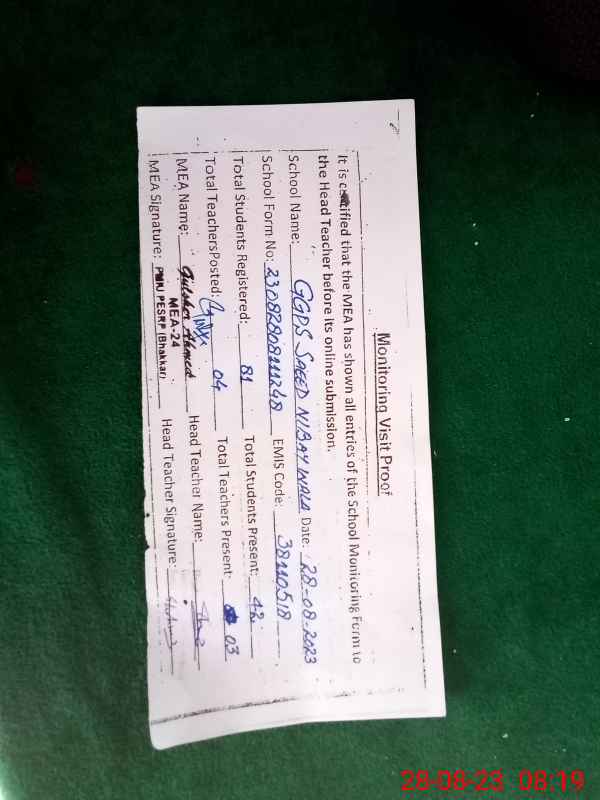 Monitoring Visit Proof
It is certified that the MEA has shown all entries of the School Monitoring Form to
the Head Teacher before its online submission.
School Name: GGPS SAEED NIBAY WALA Date: 28-08-2023
School Form No: 230828084111248 EMIS Code: 38110518
Total Students Registered: 81 Total Students Present: 42
Total TeachersPosted: 04 Total Teachers Present: 03
MEA Name: Gulsher Ahmed Head Teacher Name:
MEA-24
MEA Signature: PMIU PESRP (Bhakkar) Head Teacher Signature:
28-08-23 08:19